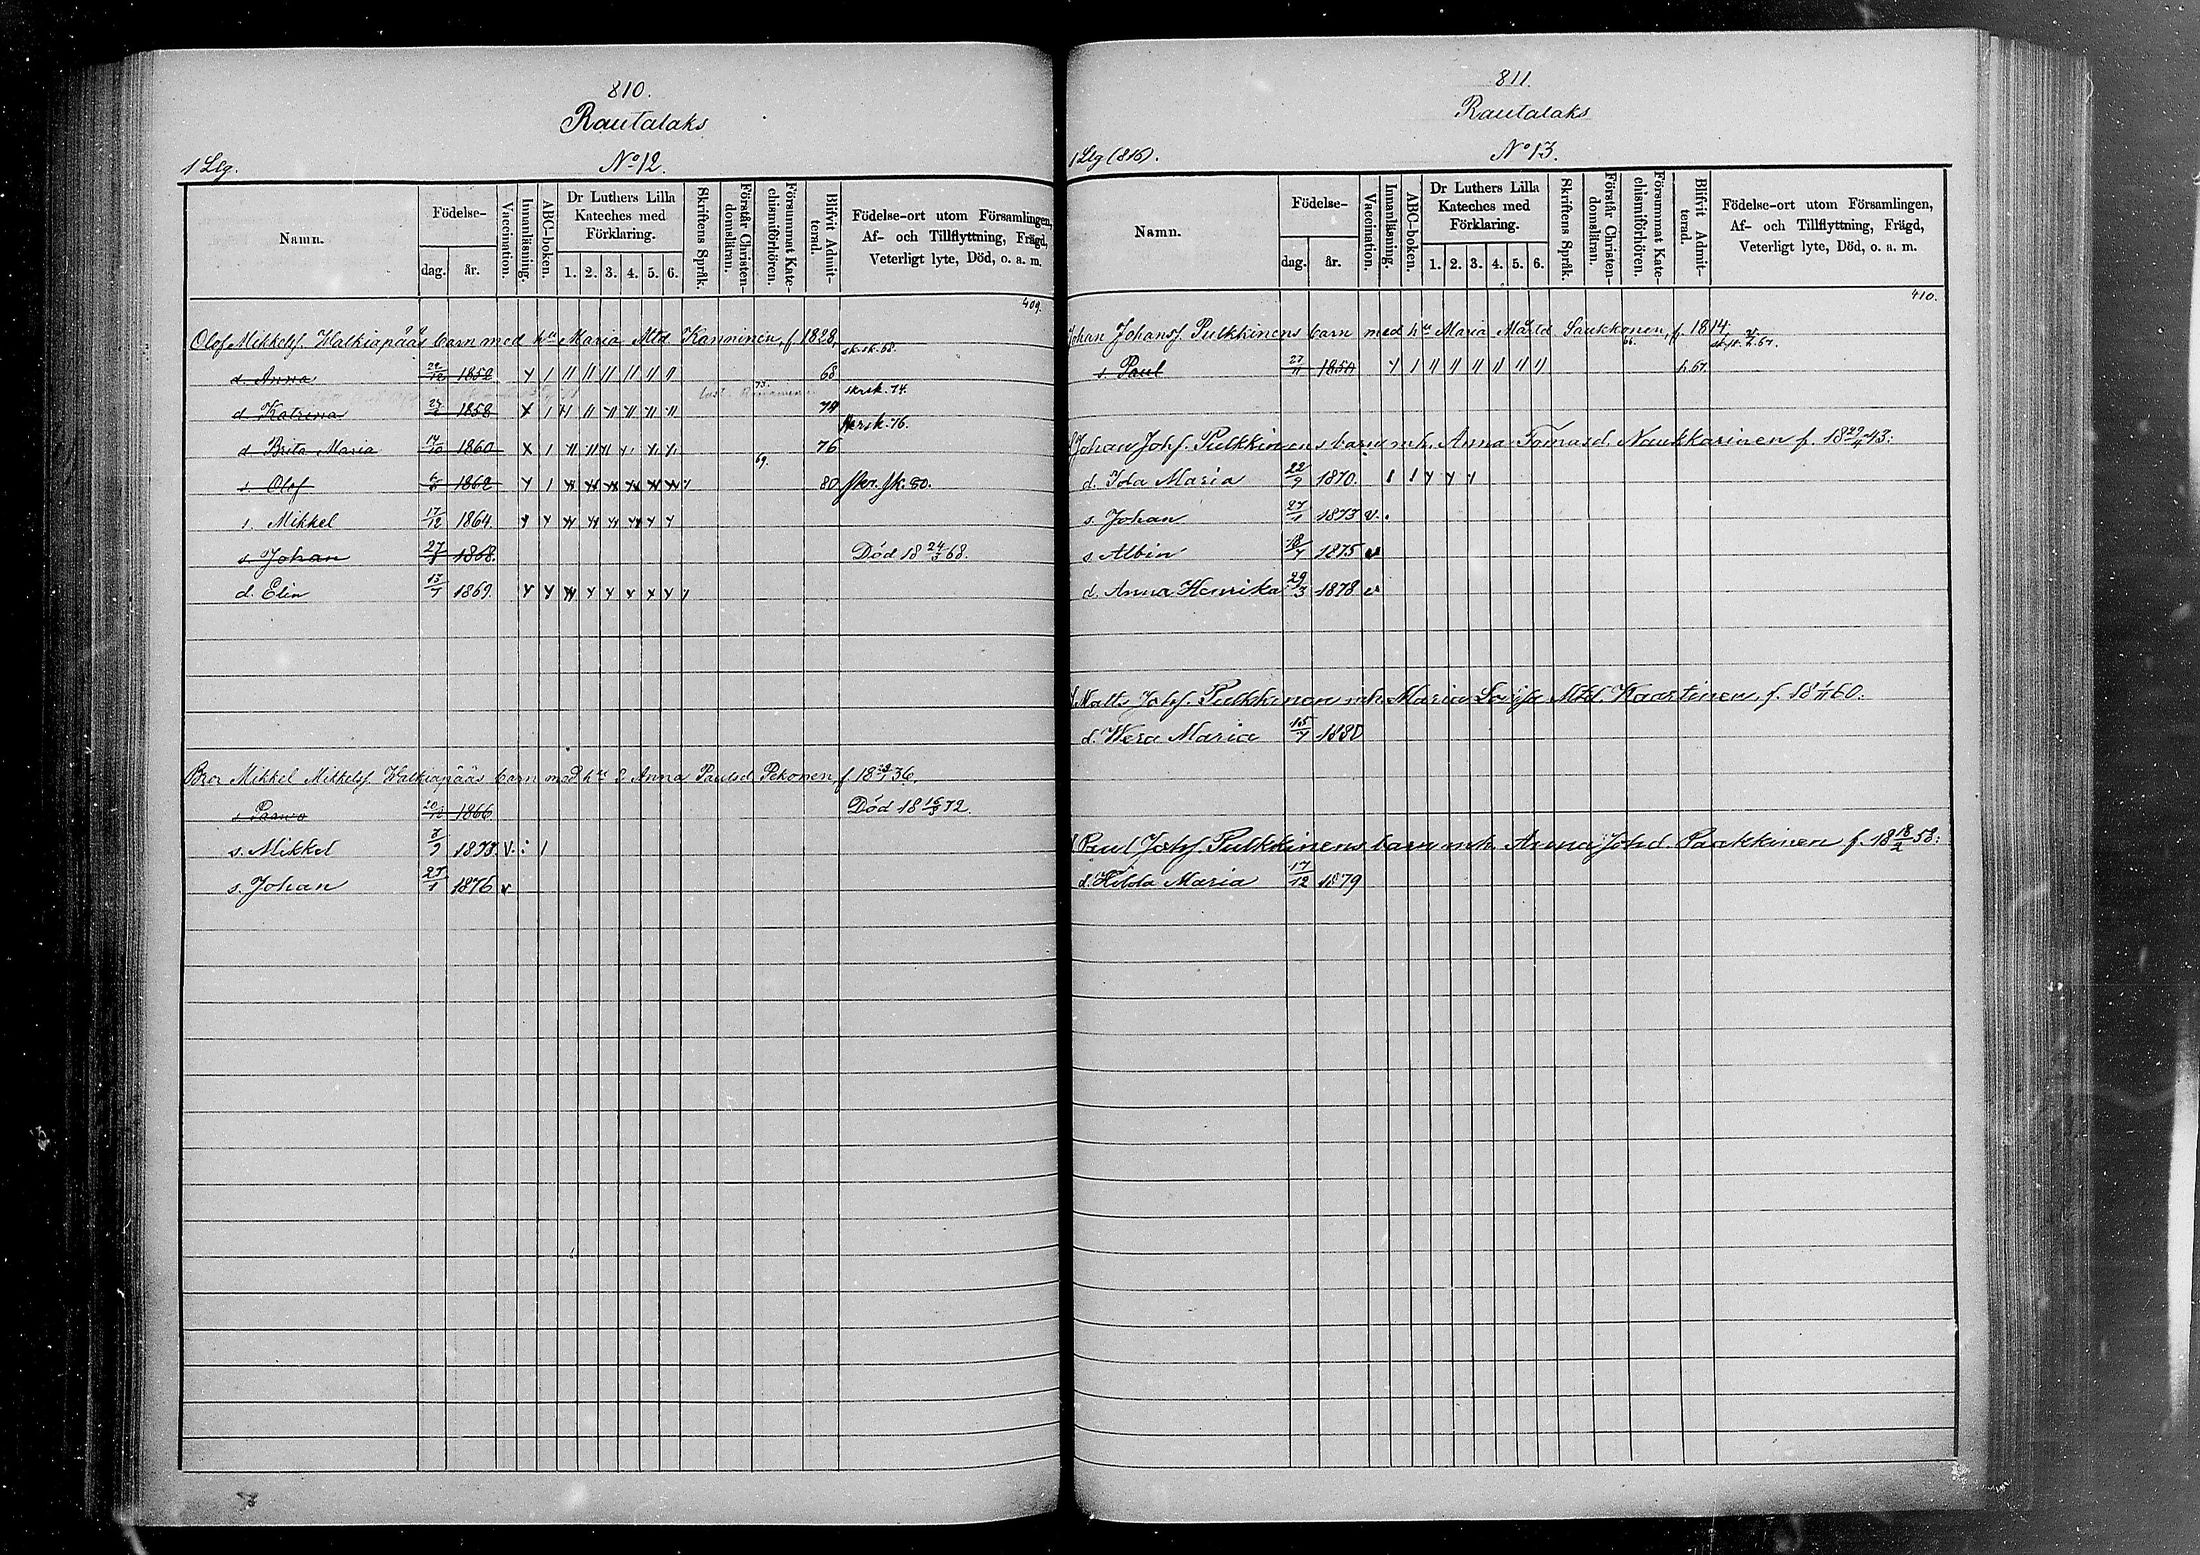 810.
Rautalaks
1 Llg.
No 12.
Namn.
Födelse-
dag.
år.
Vaccination.
Innanläsning.
ABC-boken.
Dr Luthers Lilla
Kateches med
Förklaring.
1. 2. 3. 4. 5. 6.
Skriftens Språk.
Förstår Christen-
domsläran.
Försummat Kate-
chismiförhören.
Blifvit Admit-
terad.
Födelse-ort utom Församlingen,
Af- och Tillflyttning, Frägd,
Veterligt lyte, Död, o. a. m.
409.
Olof Mikkelsf. Halkiapääs barn med hu Maria Mtd Kanninen, f 1828,
d. Anna 22/12 1852 68 sk.sk.68.
d. Katrina 1858 74 skrsk.74.
d. Brita Maria 17/10 1860 76 skrsk.76.
s. Olof 1862 69. 80 skr.sk.80.
s. Mikkel 17/12 1864.
s. Johan 1868. Död 18 24/3 68.
d. Elin 13/7 1869.
Bror Mikkel Mikkelsf Halkiapääs barn med hu 2 Anna Paulsd Pekonen f 18 36.
s 1866 Död 18 16/3 72.
s. Mikkel 1873. v.
s. Johan 1876 v
811.
Rautalaks
1 Llg (816).
No 13.
Namn.
Födelse-
dag.
år.
Vaccination.
Innanläsning.
ABC-boken.
Dr Luthers Lilla
Kateches med
Förklaring.
1. 2. 3. 4. 5. 6.
Skriftens Språk.
Förstår Christen-
domsläran.
Försummat Kate-
chismiförhören.
Blifvit Admit-
terad.
Födelse-ort utom Församlingen,
Af- och Tillflyttning, Frägd,
Veterligt lyte, Död, o. a. m.
410.
Johan Johansf. Pulkkinens barn med hu Maria Saukkonen, f. 1814
s. Paul 27/11 1850 66. h.67.
Johan Johf. Pulkkinens barn mh. Anna Tomasd. Naukkarinen f. 18 29/4 43:
d. Ida Maria 22/9 1870.
s. Johan 27/1 1873 v.
s Albin 18/7 1875 v
d. Anna Henrika 29/3 1878 v
Matts Johf. Pulkkinen mh Maria Lovisa Mtd. Kaartinen, f. 18 1/11 60:
d. Wera Maria 15/7 1880
Paul Johf. Pulkkinens barn mh. Anna Johd. Paakkinen f. 18 18/2 58:
d. Hilda Maria 17/12 1879